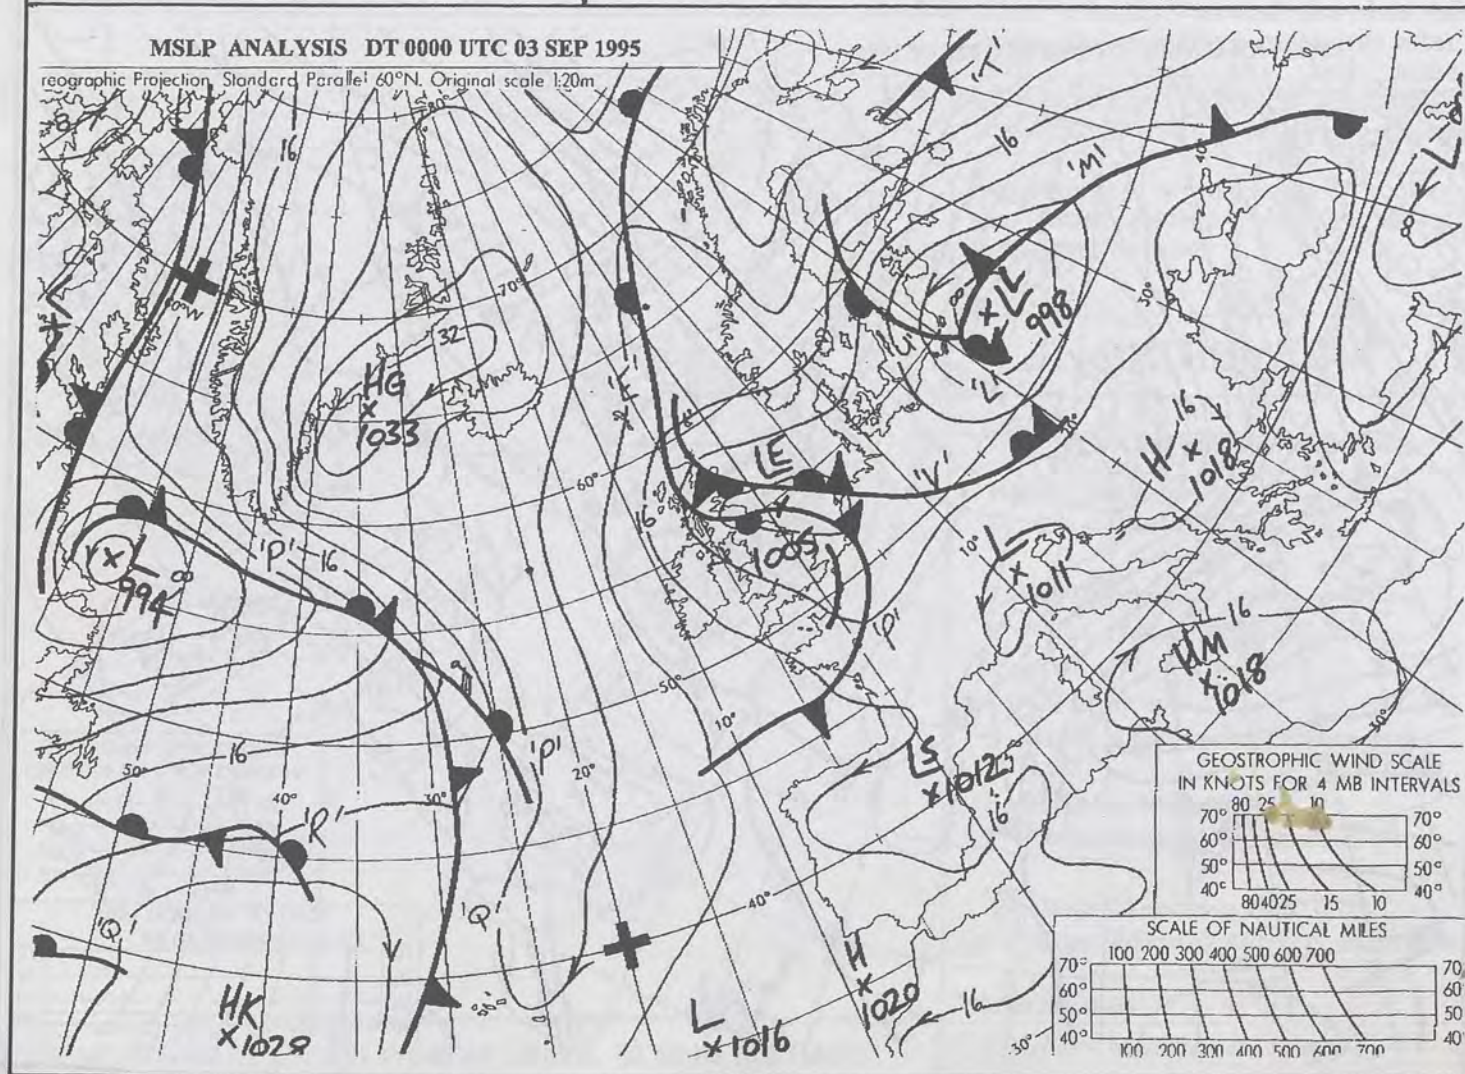 MSLP ANALYSIS DT 0000 UTC 03 SEP 1995
reographic Projection, Standard Parallel 60°N. Original scale 1:20m
80°
'T'
8
16
16
'M'
40°
L
8
8
60°W
L
70°
32
HG
1033
L
998
30°
'L'
16
H
1018
LE
'V'
60°
16
1005
10°
L
1011
'P'
16
L
994
'P'
16
HM
1018
50°
10°
30°
'P'
LS
1012
16
16
50°
40°
30°
20°
'R'
'Q'
'Q'
40°
HK
1028
L
1016
H
1020
16
30°
GEOSTROPHIC WIND SCALE
IN KNOTS FOR 4 MB INTERVALS
80 25 10
70° 70°
60° 60°
50° 50°
40° 40°
80 40 25 15 10
SCALE OF NAUTICAL MILES
100 200 300 400 500 600 700
70° 70
60° 60
50° 50
40° 40
100 200 300 400 500 600 700